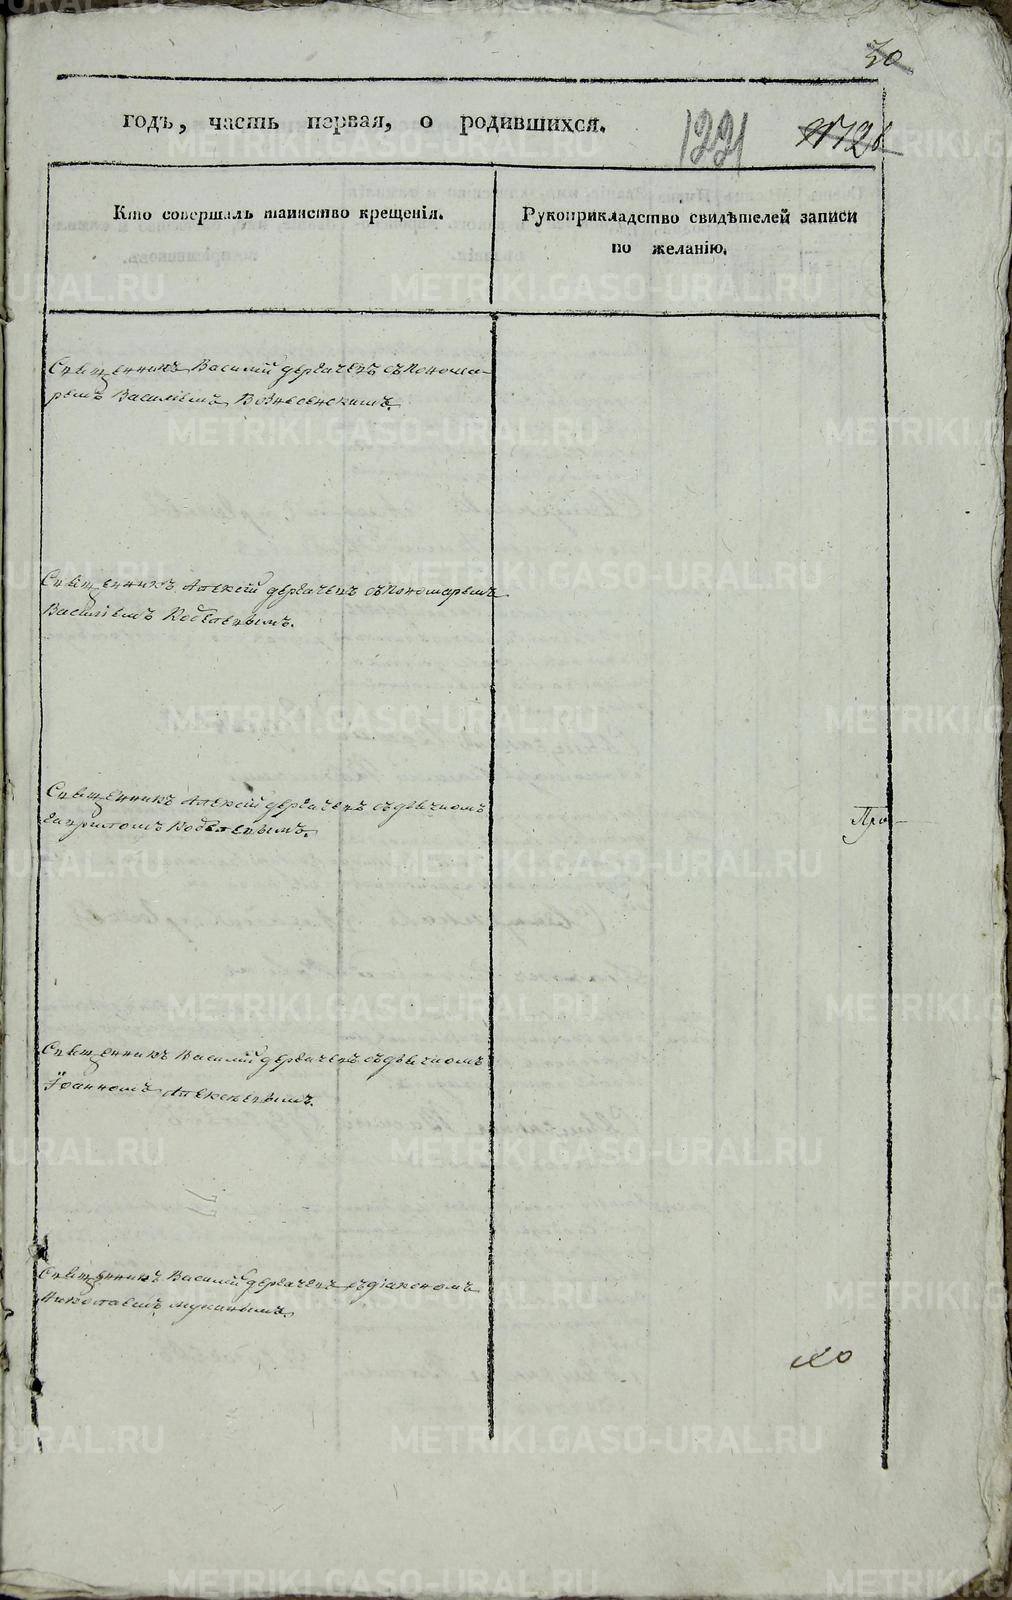 30
годъ, часть первая, о родившихся.
1221
Кто совершалъ таинство крещенія.
Рукоприкладство свидѣтелей записи
по желанію.
Священникъ Василій Дергачевъ съ Понома-
ремъ Василіемъ Вознесенскимъ.
Священникъ Алексій Дергачевъ съ Пономаремъ
Василіемъ Кобелевымъ.
Священникъ Алексій Дергачевъ съ дьячкомъ
Гавріиломъ Кобелевымъ.
Про-
Священникъ Василій Дергачевъ съ дьячкомъ
Іоанномъ Алексѣевымъ.
Священникъ Василій Дергачевъ съ діакономъ
Николаемъ
METRIKI.GASO-URAL.RU